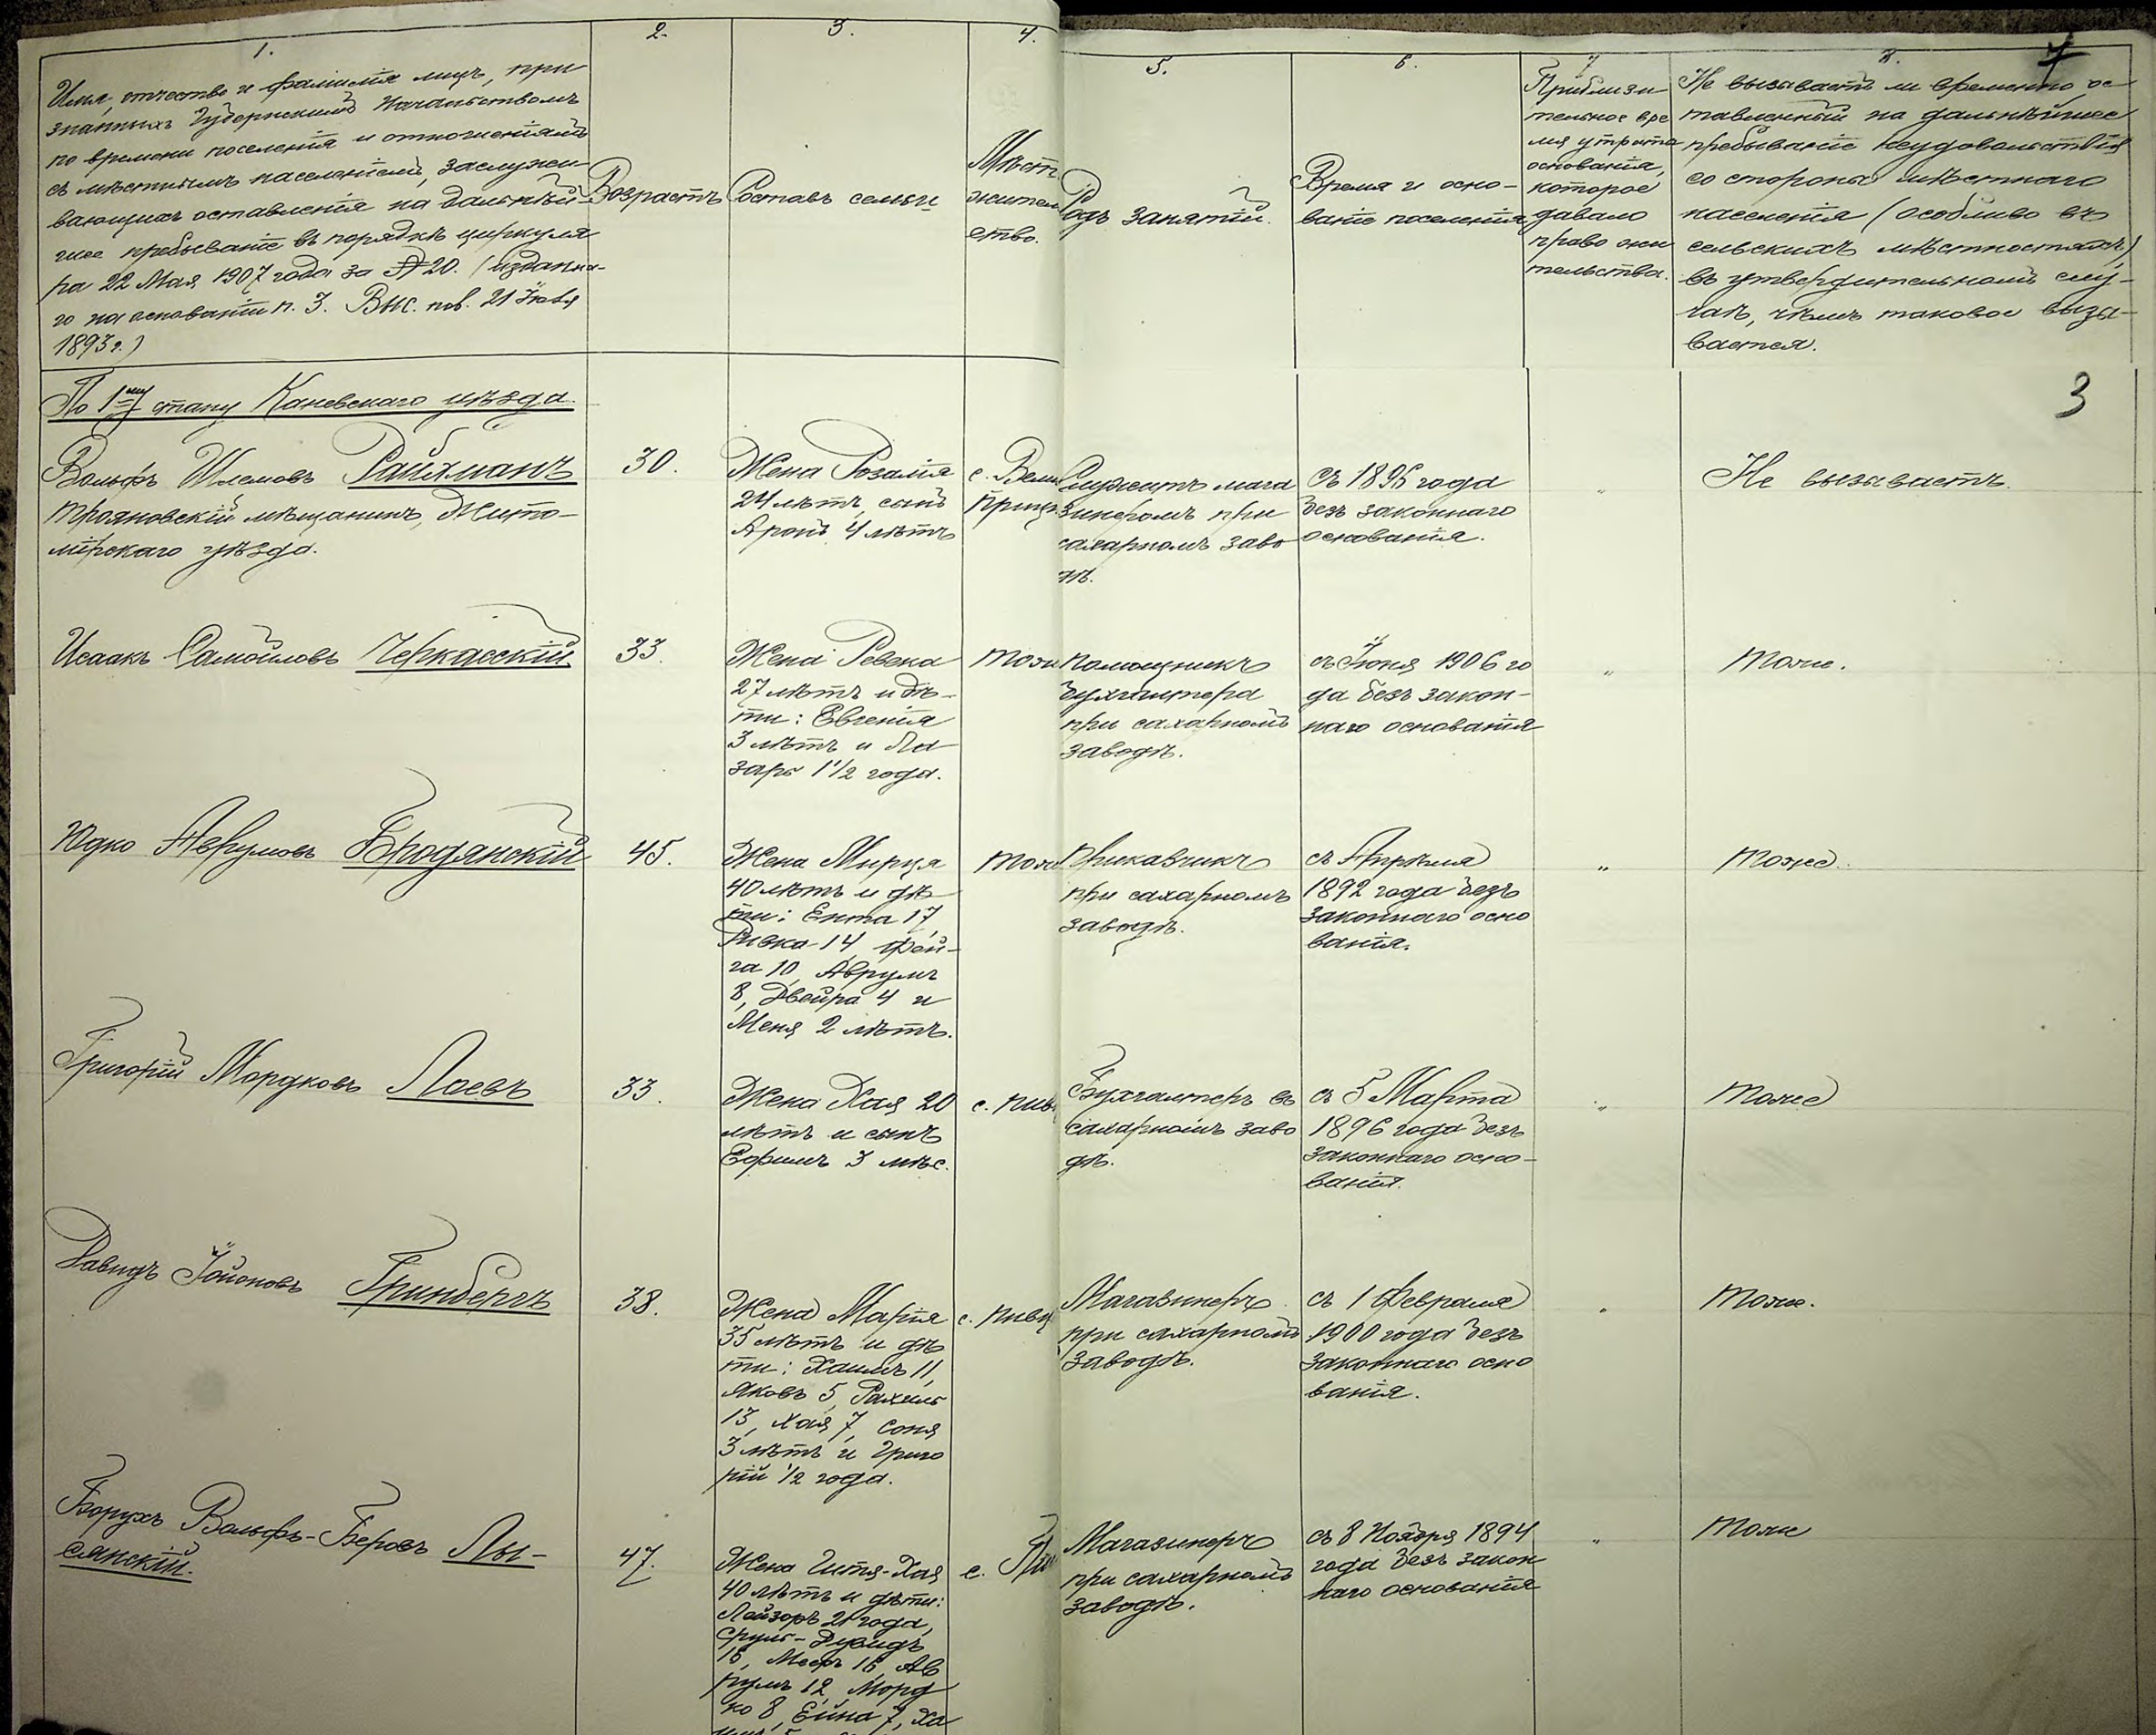 1.
Имя, отчество и фамилія лицъ, при
знанныхъ Губернскимъ Начальствомъ
по времени поселенія и отношеніямъ
съ мѣстнымъ населеніемъ, заслужи-
вающихъ оставленія на дальнѣй-
шее пребываніе въ порядкѣ циркуля
ра 22 Мая 1907 года за № 20. (изданна-
го на основаніи п. 3. Выс. пов. 21 Іюля
1893 г.)
2.
Возрастъ
3.
Составъ семьи
4.
Мѣст
жител
ство.
5.
Родъ занятій.
6.
Время и осно-
ваніе поселенія
7
Приблизи
тельное вре
мя утраты
основанія,
которое
давало
право жи
тельства.
8.
7
Не вызываетъ ли временно ос
тавленный на дальнѣйшее
пребываніе неудовольствія
со стороны мѣстнаго
населенія (особливо въ
сельскихъ мѣстностяхъ)
въ утвердительномъ слу-
чаѣ, чѣмъ таковое вызы-
вается.
3
По 1му стану Каневскаго уѣзда.
Вольфъ Шлемовъ Райхманъ
трояновскій мѣщанинъ, Жито-
мірскаго уѣзда.
30.
Жена Розалія
24 лѣтъ, сынъ
Аронъ 4 лѣтъ
с. Вели
Приц
Служитъ мага
зинеромъ при
сахарномъ заво
дѣ.
Съ 1896 года
безъ законнаго
основанія.
"
Не вызываетъ.
Исаакъ Самойловъ Черкасскій
33.
Жена Ревека
27 лѣтъ и дѣ-
ти: Евгенія
3 лѣтъ и Ла
зарь 1 1/2 года.
тоже
помощникъ
бухгалтера
при сахарномъ
заводѣ.
съ Іюня 1906 го
да безъ закон-
наго основанія
"
тоже.
Юдко Аврумовъ Бродянскій
45.
Жена Мирця
40 лѣтъ и дѣ
ти: Ента 17,
Ривка 14 Фей-
га 10, Аврумъ
8, Двейра 4 и
Меня 2 лѣтъ.
тоже
Приказчикъ
при сахарномъ
заводѣ.
съ Апрѣля
1892 года безъ
законнаго осно
ванія.
"
тоже.
Григорій Мордковъ Лаевъ
33.
Жена Хая 20
лѣтъ и сынъ
Ефимъ 3 мѣс.
с. пив
Бухгалтеръ въ
сахарномъ заво
дѣ.
съ 5 Марта
1896 года безъ
законнаго осно-
ванія.
"
тоже
Давидъ Іойоновъ Гринбергъ
38.
Жена Марія
35 лѣтъ и дѣ
ти: Хаимъ 11,
Яковъ 5, Рахиль
13, Хая 7, Соня
3 лѣтъ и Григо
рій 1/2 года.
с. пивц
Магазинеръ
при сахарномъ
заводѣ.
съ 1 Февраля
1900 года безъ
законнаго осно
ванія.
"
тоже.
Борухъ Вольфъ-Беровъ Лы-
сянскій.
47.
Жена Гитя-Хая
40 лѣтъ и дѣти:
Лейзоръ 21 года,
Сруль-Дувидъ
16, Мееръ 16, Ав
румъ 12, Морд
ко 8, Ейна 7, Ха
с. Пи
Магазинеръ
при сахарномъ
заводѣ.
съ 8 Ноября 1894
года безъ закон
наго основанія
"
тоже